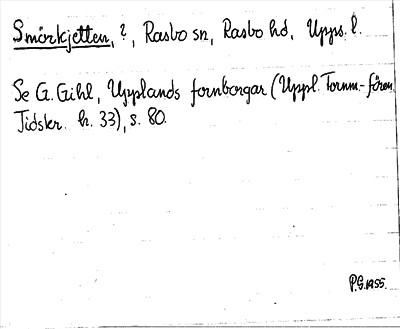 Smörkjetten, ?, Rasbo sn, Rasbo hd, Upps. l.
Se G. Gihl, Upplands fornborgar (Uppl. Fornm.-fören.
Tidskr. h. 33), s. 80.
P.G. 1955.